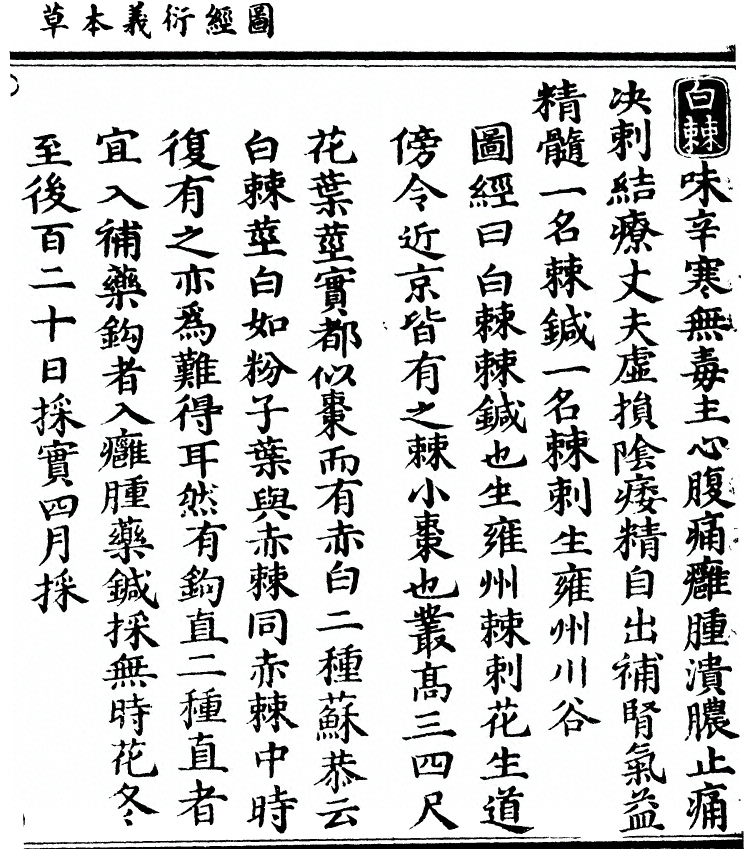 圖經衍義本草
白棘味辛寒無毒主心腹痛癰腫潰膿止痛
决刺結療丈夫虛損陰痿精自出補腎氣益
精髓一名棘鍼一名棘刺生雍州川谷
圖經曰白棘棘鍼也生雍州棘刺花生道
傍令近京皆有之棘小棗也叢髙三四尺
花葉莖實都似棗而有赤白二種蘇恭云
白棘莖白如粉子葉與赤棘同赤棘中時
復有之亦爲難得耳然有鈎直二種直者
宜入補藥鈎者入癰腫藥鍼採無時花冬
至後百二十日採實四月採